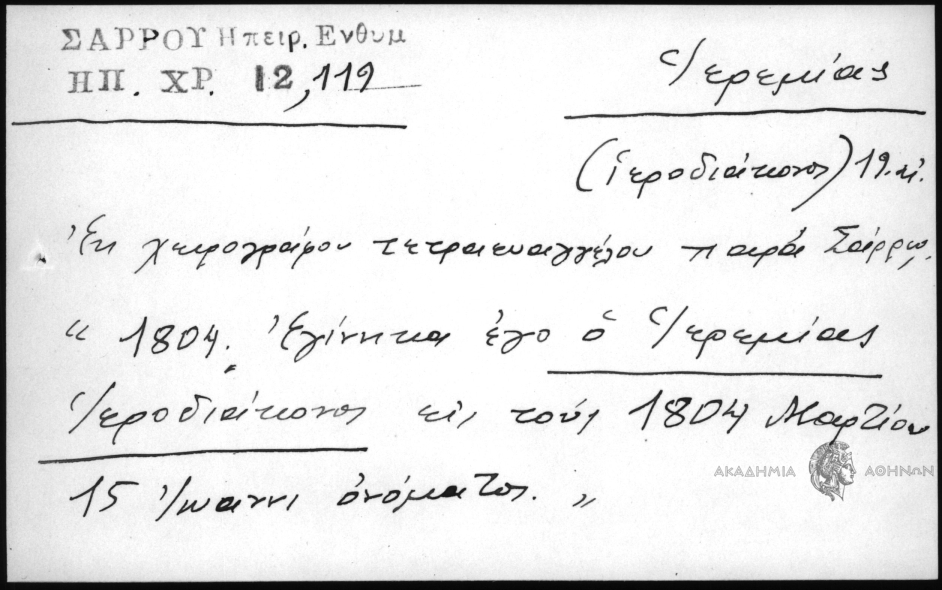 ΣΑΡΡΟΥ Ηπειρ. Ενθυμ
ΗΠ. ΧΡ. 12, 119
Ἱερεμίας
(ἱεροδιάκονος) 19. αἰ.
Ἐκ χειρογράφου τετραευαγγέλου παρὰ Σάρρῳ.
" 1804. Ἐγίνηκα ἐγο ὁ Ἱερεμίας
Ἱεροδιάκονος εἰς τοὺς 1804 Μαρτίου
15 Ἰωαννι ὀνόματος. "
ΑΚΑΔΗΜΙΑ ΑΘΗΝΩΝ